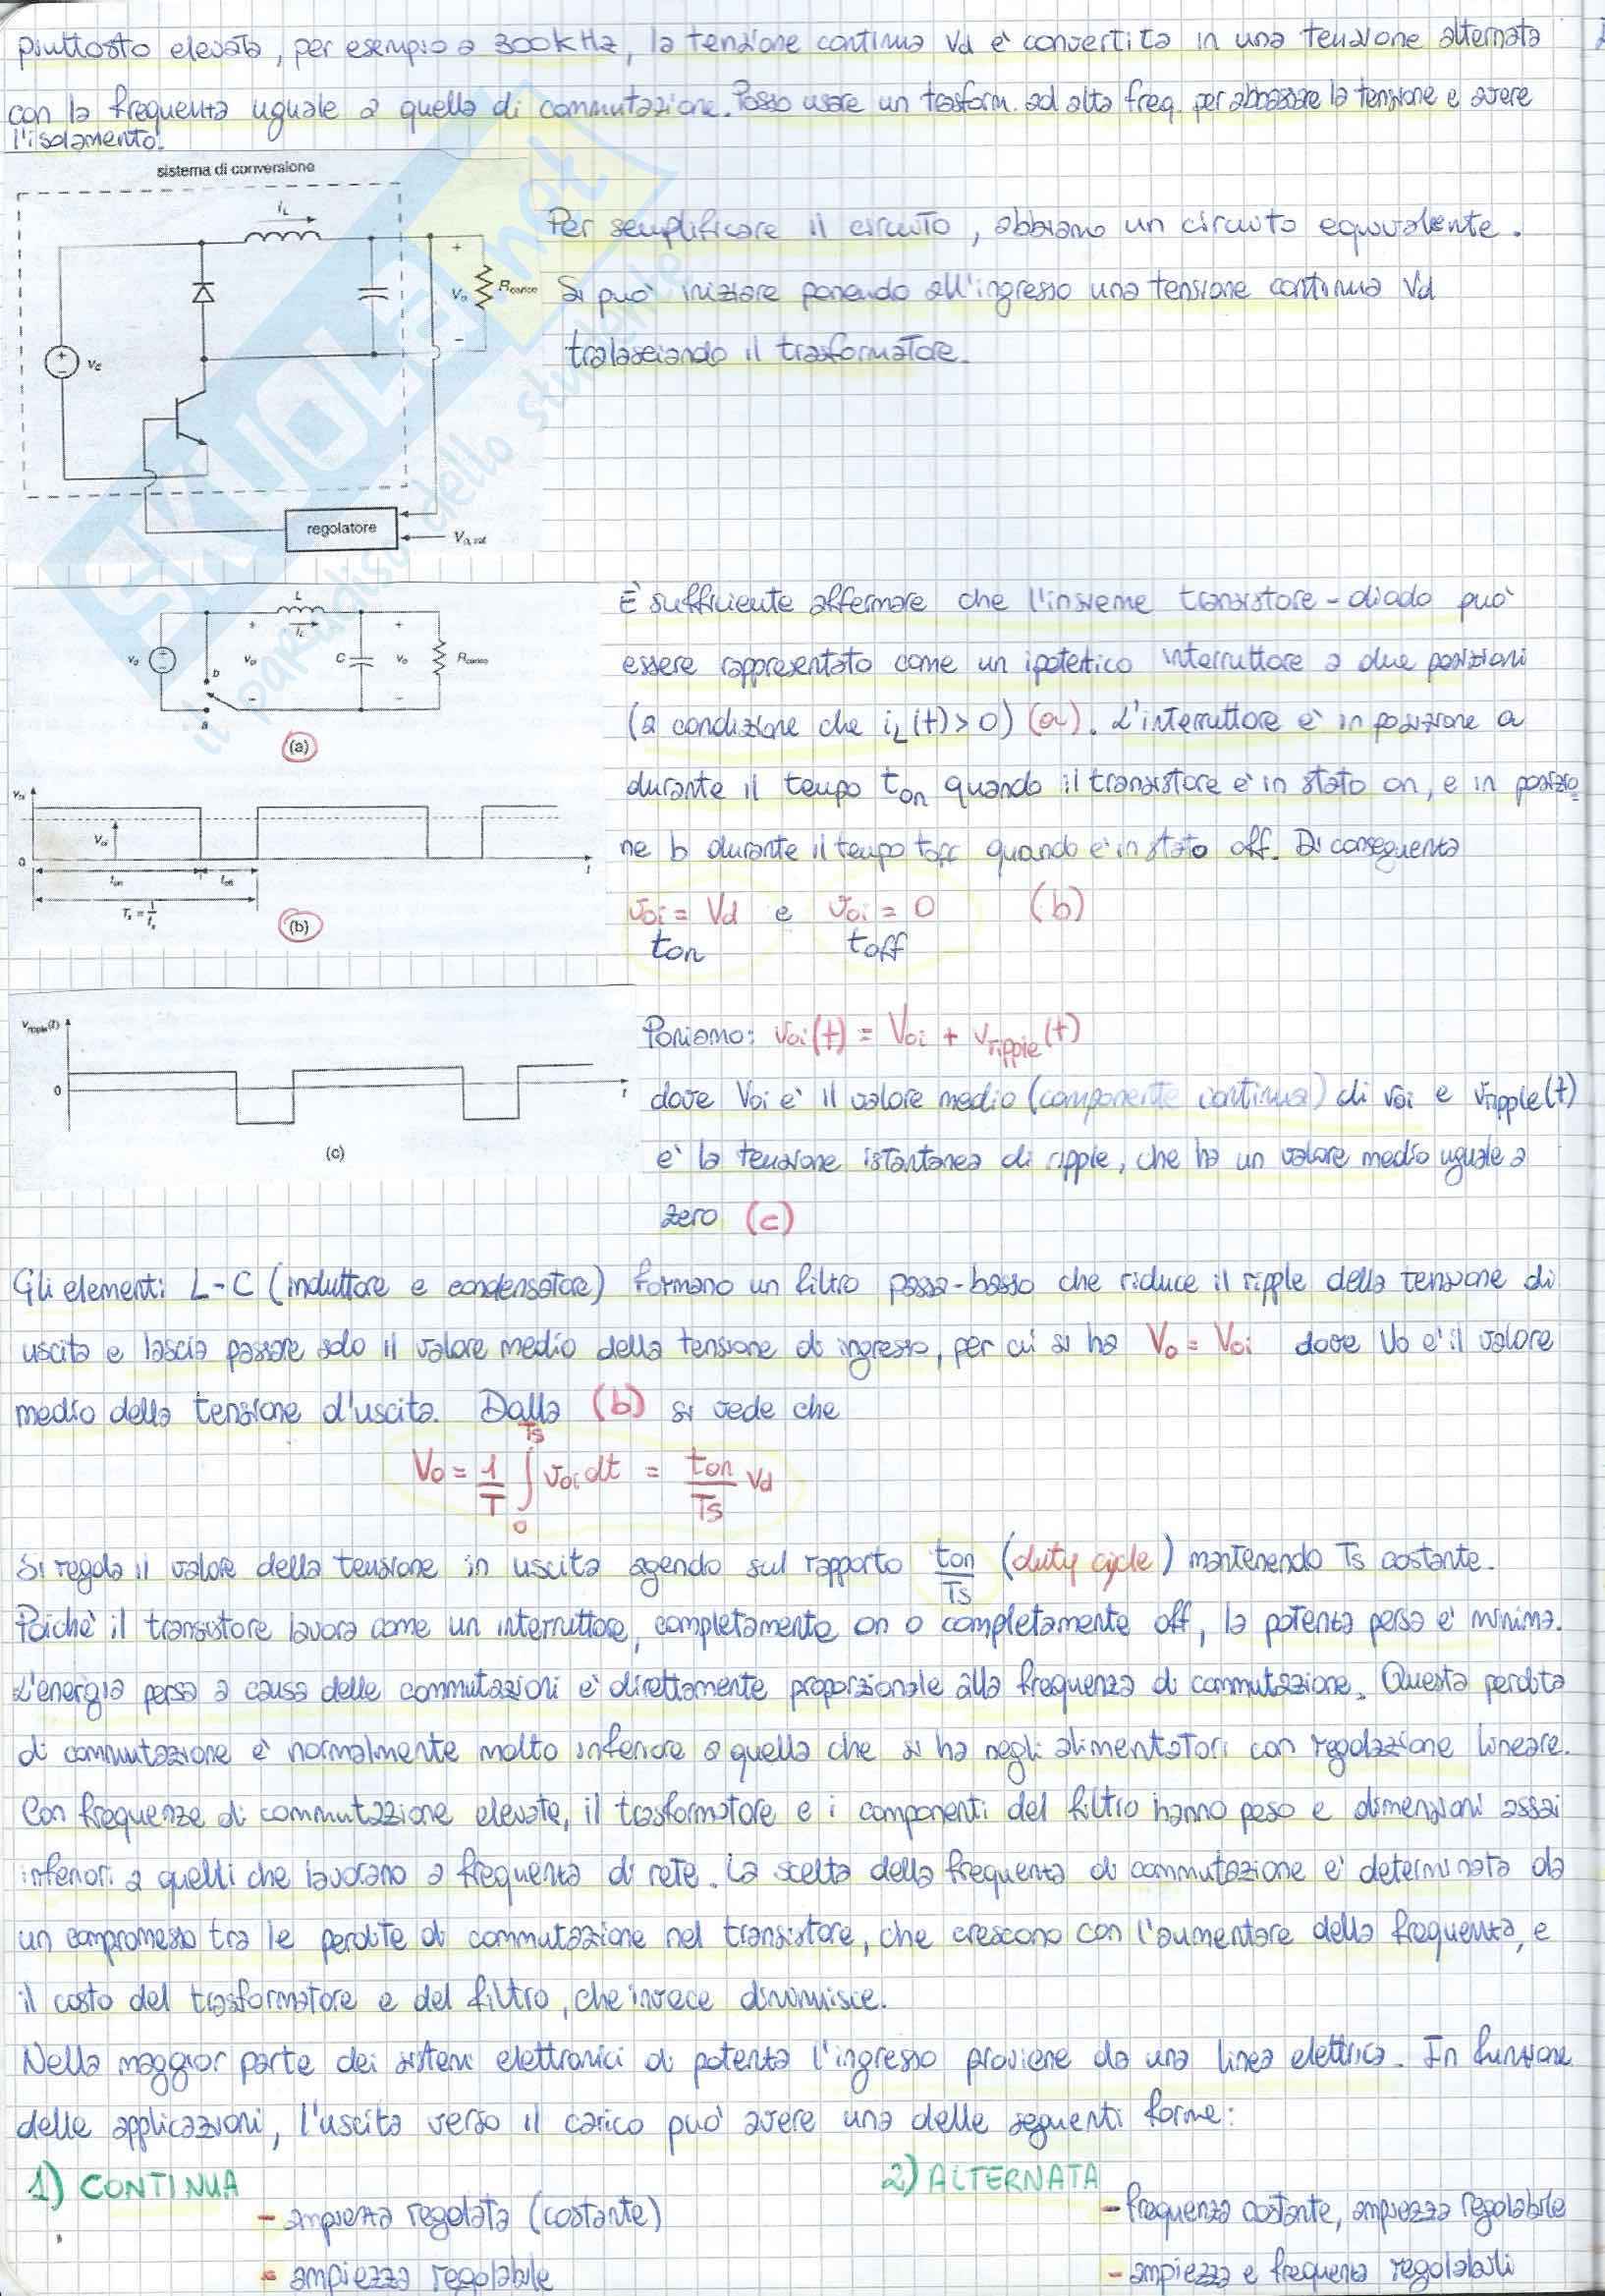 piuttosto elevata, per esempio a 300kHz, la tensione continua Vd è convertita in una tensione alternata
con la frequenza uguale a quella di commutazione. Posso usare un trasform. ad alta freq. per abbassare la tensione e avere
l'isolamento.
sistema di conversione
iL
Vo
Rcarico
Vd
regolatore
Vo, ref
Per semplificare il circuito, abbiamo un circuito equivalente.
Si può iniziare ponendo all'ingresso una tensione continua Vd
tralasciando il trasformatore.
L
iL
vd
voi
C
vo
Rcarico
b
a
(a)
È sufficiente affermare che l'insieme transistore-diodo può
essere rappresentato come un ipotetico interruttore a due posizioni
(a condizione che iL(t)>0) (a). L'interruttore è in posizione a
durante il tempo ton quando il transistore è in stato on, e in posizio
ne b durante il tempo toff quando è in stato off. Di conseguenza
voi = Vd e voi = 0 (b)
ton toff
voi
Voi
0
ton toff
t
Ts = 1/fs
(b)
vripple(t)
0
t
(c)
Poniamo: voi(t) = Voi + vripple(t)
dove Voi è il valore medio (componente continua) di voi e vripple(t)
è la tensione istantanea di ripple, che ha un valore medio uguale a
zero (c)
Gli elementi L-C (induttore e condensatore) formano un filtro passa-basso che riduce il ripple della tensione di
uscita e lascia passare solo il valore medio della tensione di ingresso, per cui si ha Vo = Voi dove Vo è il valore
medio della tensione d'uscita. Dalla (b) si vede che
Vo = 1/T ∫0Ts voi dt = ton/Ts Vd
Si regola il valore della tensione in uscita agendo sul rapporto ton/Ts (duty cycle) mantenendo Ts costante.
Poiché il transistore lavora come un interruttore, completamente on o completamente off, la potenza persa è minima.
L'energia persa a causa delle commutazioni è direttamente proporzionale alla frequenza di commutazione. Questa perdita
di commutazione è normalmente molto inferiore a quella che si ha negli alimentatori con regolazione lineare.
Con frequenze di commutazione elevate, il trasformatore e i componenti del filtro hanno peso e dimensioni assai
inferiori a quelli che lavorano a frequenza di rete. La scelta della frequenza di commutazione è determinata da
un compromesso tra le perdite di commutazione nel transistore, che crescono con l'aumentare della frequenza, e
il costo del trasformatore e del filtro, che invece diminuisce.
Nella maggior parte dei sistemi elettronici di potenza l'ingresso proviene da una linea elettrica. In funzione
delle applicazioni, l'uscita verso il carico può avere una delle seguenti forme:
1) CONTINUA
- ampiezza regolata (costante)
- ampiezza regolabile
2) ALTERNATA
- frequenza costante, ampiezza regolabile
- ampiezza e frequenza regolabili
SKUOLA.net
il paradiso dello studente